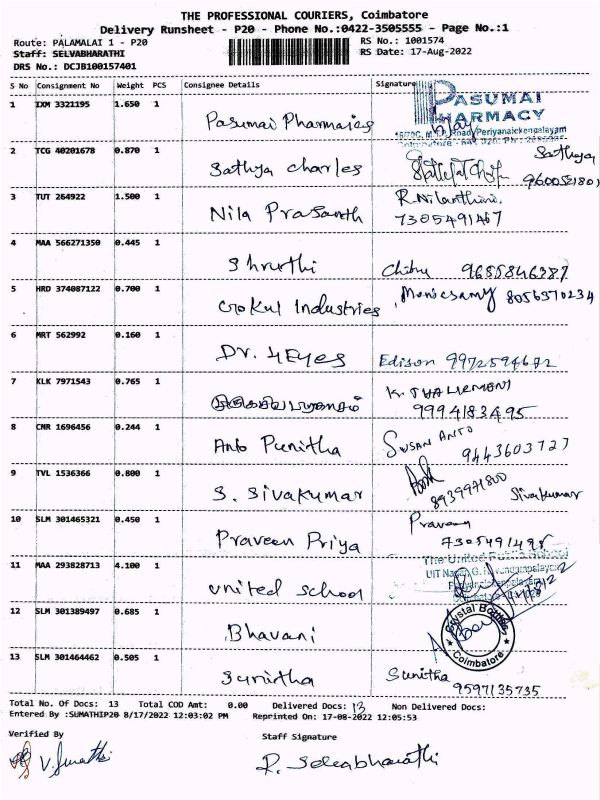 THE PROFESSIONAL COURIERS, Coimbatore
Delivery Runsheet - P20 - Phone No.:0422-3505555 - Page No.:1
Route: PALAMALAI 1 - P20
RS No.: 1001574
Staff: SELVABHARATHI
RS Date: 17-Aug-2022
DRS No.: DCJB100157401
S No Consignment No Weight PCS Consignee Details Signature
1 IXM 3321195 1.650 1 Pasumai Pharmacies PASUMAI PHARMACY
Periyanaickenpalayam
2 TCG 40201678 0.870 1 Sathya charles Sathya
3 TUT 264922 1.500 1 Nila Prasanth R. Nilanthini
7305491467
4 MAA 566271350 0.445 1 Shruthi 9655846387
5 HRD 374087122 0.700 1 Gokul Industries 8056370234
6 MRT 562992 0.160 1 Dr. 4Eyes Edison
7 KLK 7971543 0.765 1
9994183495
8 CNR 1696456 0.244 1 Anto Punitha SUSAN ANTO
9443603727
9 TVL 1536366 0.800 1 S. Sivakumar Sivakumar
10 SLM 301465321 0.450 1 Praveen Priya
11 MAA 293828713 4.100 1 united school The United Public School
12 SLM 301389497 0.685 1 Bhavani Crystal
Coimbatore
13 SLM 301464462 0.505 1 Sunitha Sunitha
9597135735
Total No. Of Docs: 13 Total COD Amt: 0.00 Delivered Docs: 13 Non Delivered Docs:
Entered By :SUMATHIP20 8/17/2022 12:03:02 PM Reprinted On: 17-08-2022 12:05:53
Verified By
Staff Signature
V. Sumathi